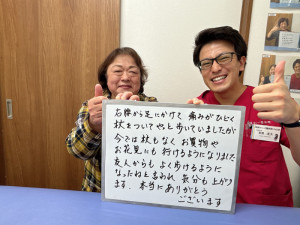 右膝から足にかけて痛みがひどく
杖をついてやっと歩いていましたが
今では杖もなくお買物や
お花見にも行けるようになりました
友人からもよく歩けるように
なったねと言われ気分も上がり
ます。本当にありがとう
ございます